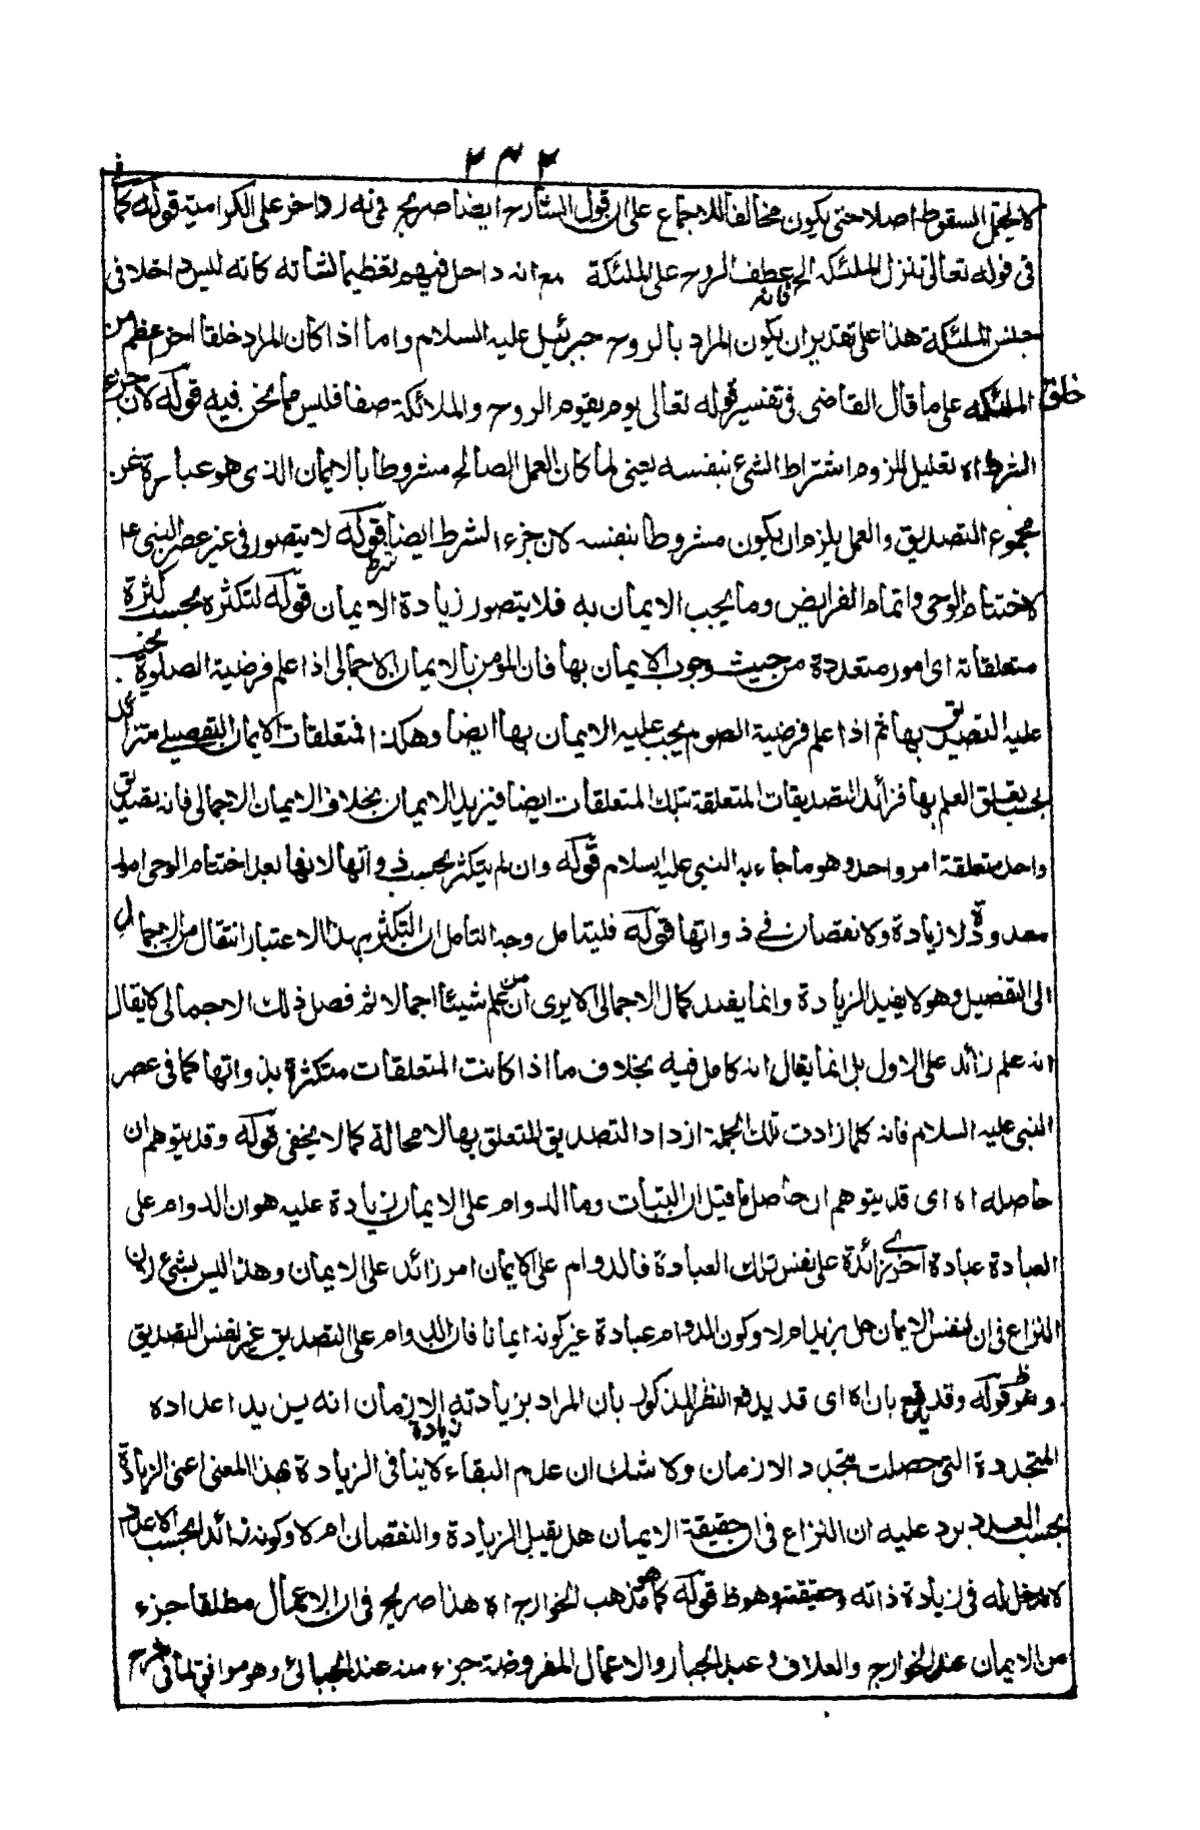 ٢٣٢
لا يحتمل السقوط اصلا حتى يكون مخالفا للاجماع على ان قول الشارح ايضا صريح في نه رد اخر على الكرامية قوله كما
في قوله تعالى تنزل الملئكة الخ عطف الروح على الملئكة مع انه داخل فيهم تعظيما لشانه كانه ليس داخلا في
جنس الملئكة هذا على تقدير ان يكون المراد بالروح جبرئيل عليه السلام واما اذا كان المراد خلقا اخر اعظم من
خلق الملئكة على ما قال القاضى في تفسير قوله تعالى يوم يقوم الروح والملائكة صفا فليس مما نحن فيه قوله لان جزء
الشرط اه تعليل للزوم اشتراط الشئ بنفسه يعنى لما كان العمل الصالح مشروطا بالايمان الذى هو عبارة عن
مجموع التصديق والعمل يلزم ان يكون مشروطا بنفسه لان جزء الشرط شرط ايضا قوله لا يتصور في غير عصر النبى ع
لاختتام الوحى واتمام الفرايض وما يجب الايمان به فلا يتصور زيادة الايمان قوله لتكثره بحسب كثرة
متعلقاته اى امور متعددة من حيث وجوب الايمان بها فان المؤمن بالايمان الاجمالى اذا علم فرضية الصلوة يجب
عليه التصديق بها ثم اذا علم فرضية الصوم يجب عليه الايمان بها ايضا وهكذا فمتعلقات الايمان التفصيلى متزائد
بحسب تعلق العلم بها فزائد التصديقات المتعلقة بتلك المتعلقات ايضا فيزيد الايمان بخلاف الايمان الاجمالى فانه تصديق
واحد متعلقة امر واحد وهو ما جاء به النبى عليه السلام قوله وان لم يتكثر بحسب ذواتها لانها بعد اختتام الوحى امور
معدودة لا زيادة ولا نقصان في ذواتها قوله فليتامل وجه التامل ان التكثر بهذا الاعتبار انتقال من الاجمال
الى التفصيل وهو لا يفيد الزيادة وانما يفيد كمال الاجمالى الا يرى ان من علم شيئا اجمالا ثم فصل ذلك الاجمالى لا يقال
انه علم زائد على الاول بل انما يقال انه كامل فيه بخلاف ما اذا كانت المتعلقات متكثرة بذواتها كما في عصر
النبى عليه السلام فانه كلما زادت تلك الجملة ازداد التصديق المتعلق بها لا محالة كما لا يخفى قوله وقد يتوهم ان
حاصله اه اى قد يتوهم ان حاصل ما قيل ان الثبات وما الدوام على الايمان زيادة عليه هو ان الدوام على
العبادة عبادة اخرى زائدة على نفس تلك العبادة فالدوام على الايمان امر زائد على الايمان وهذا ليس بشئ لان
النزاع في ان نفس الايمان هل يزيد ام لا وكون الدوام عبادة غير كونه ايمانا فان الدوام على التصديق غير نفس التصديق
وهو ظ قوله وقد يدفع بان اه اى قد يدفع النظر المذكور بان المراد بزيادته زيادة الازمان انه يزيد اعداده
المتجددة التى حصلت بتجدد الازمان ولا شك ان عدم البقاء لا ينافى الزيادة بهذا المعنى اعنى الزيادة
بحسب العدد يرد عليه ان النزاع في ان حقيقة الايمان هل يقبل الزيادة والنقصان ام لا وكونه زائدا بحسب الاعداد
لا مدخل له في زيادة ذاته وحقيقته وهو ظ قوله كما هو مذهب الخوارج اه هذا صريح في ان الاعمال مطلقا جزء
من الايمان عند الخوارج والعلاف وعبد الجبار والاعمال المفروضة جزء منه عند الجبائى وهو موافق لما في شرح